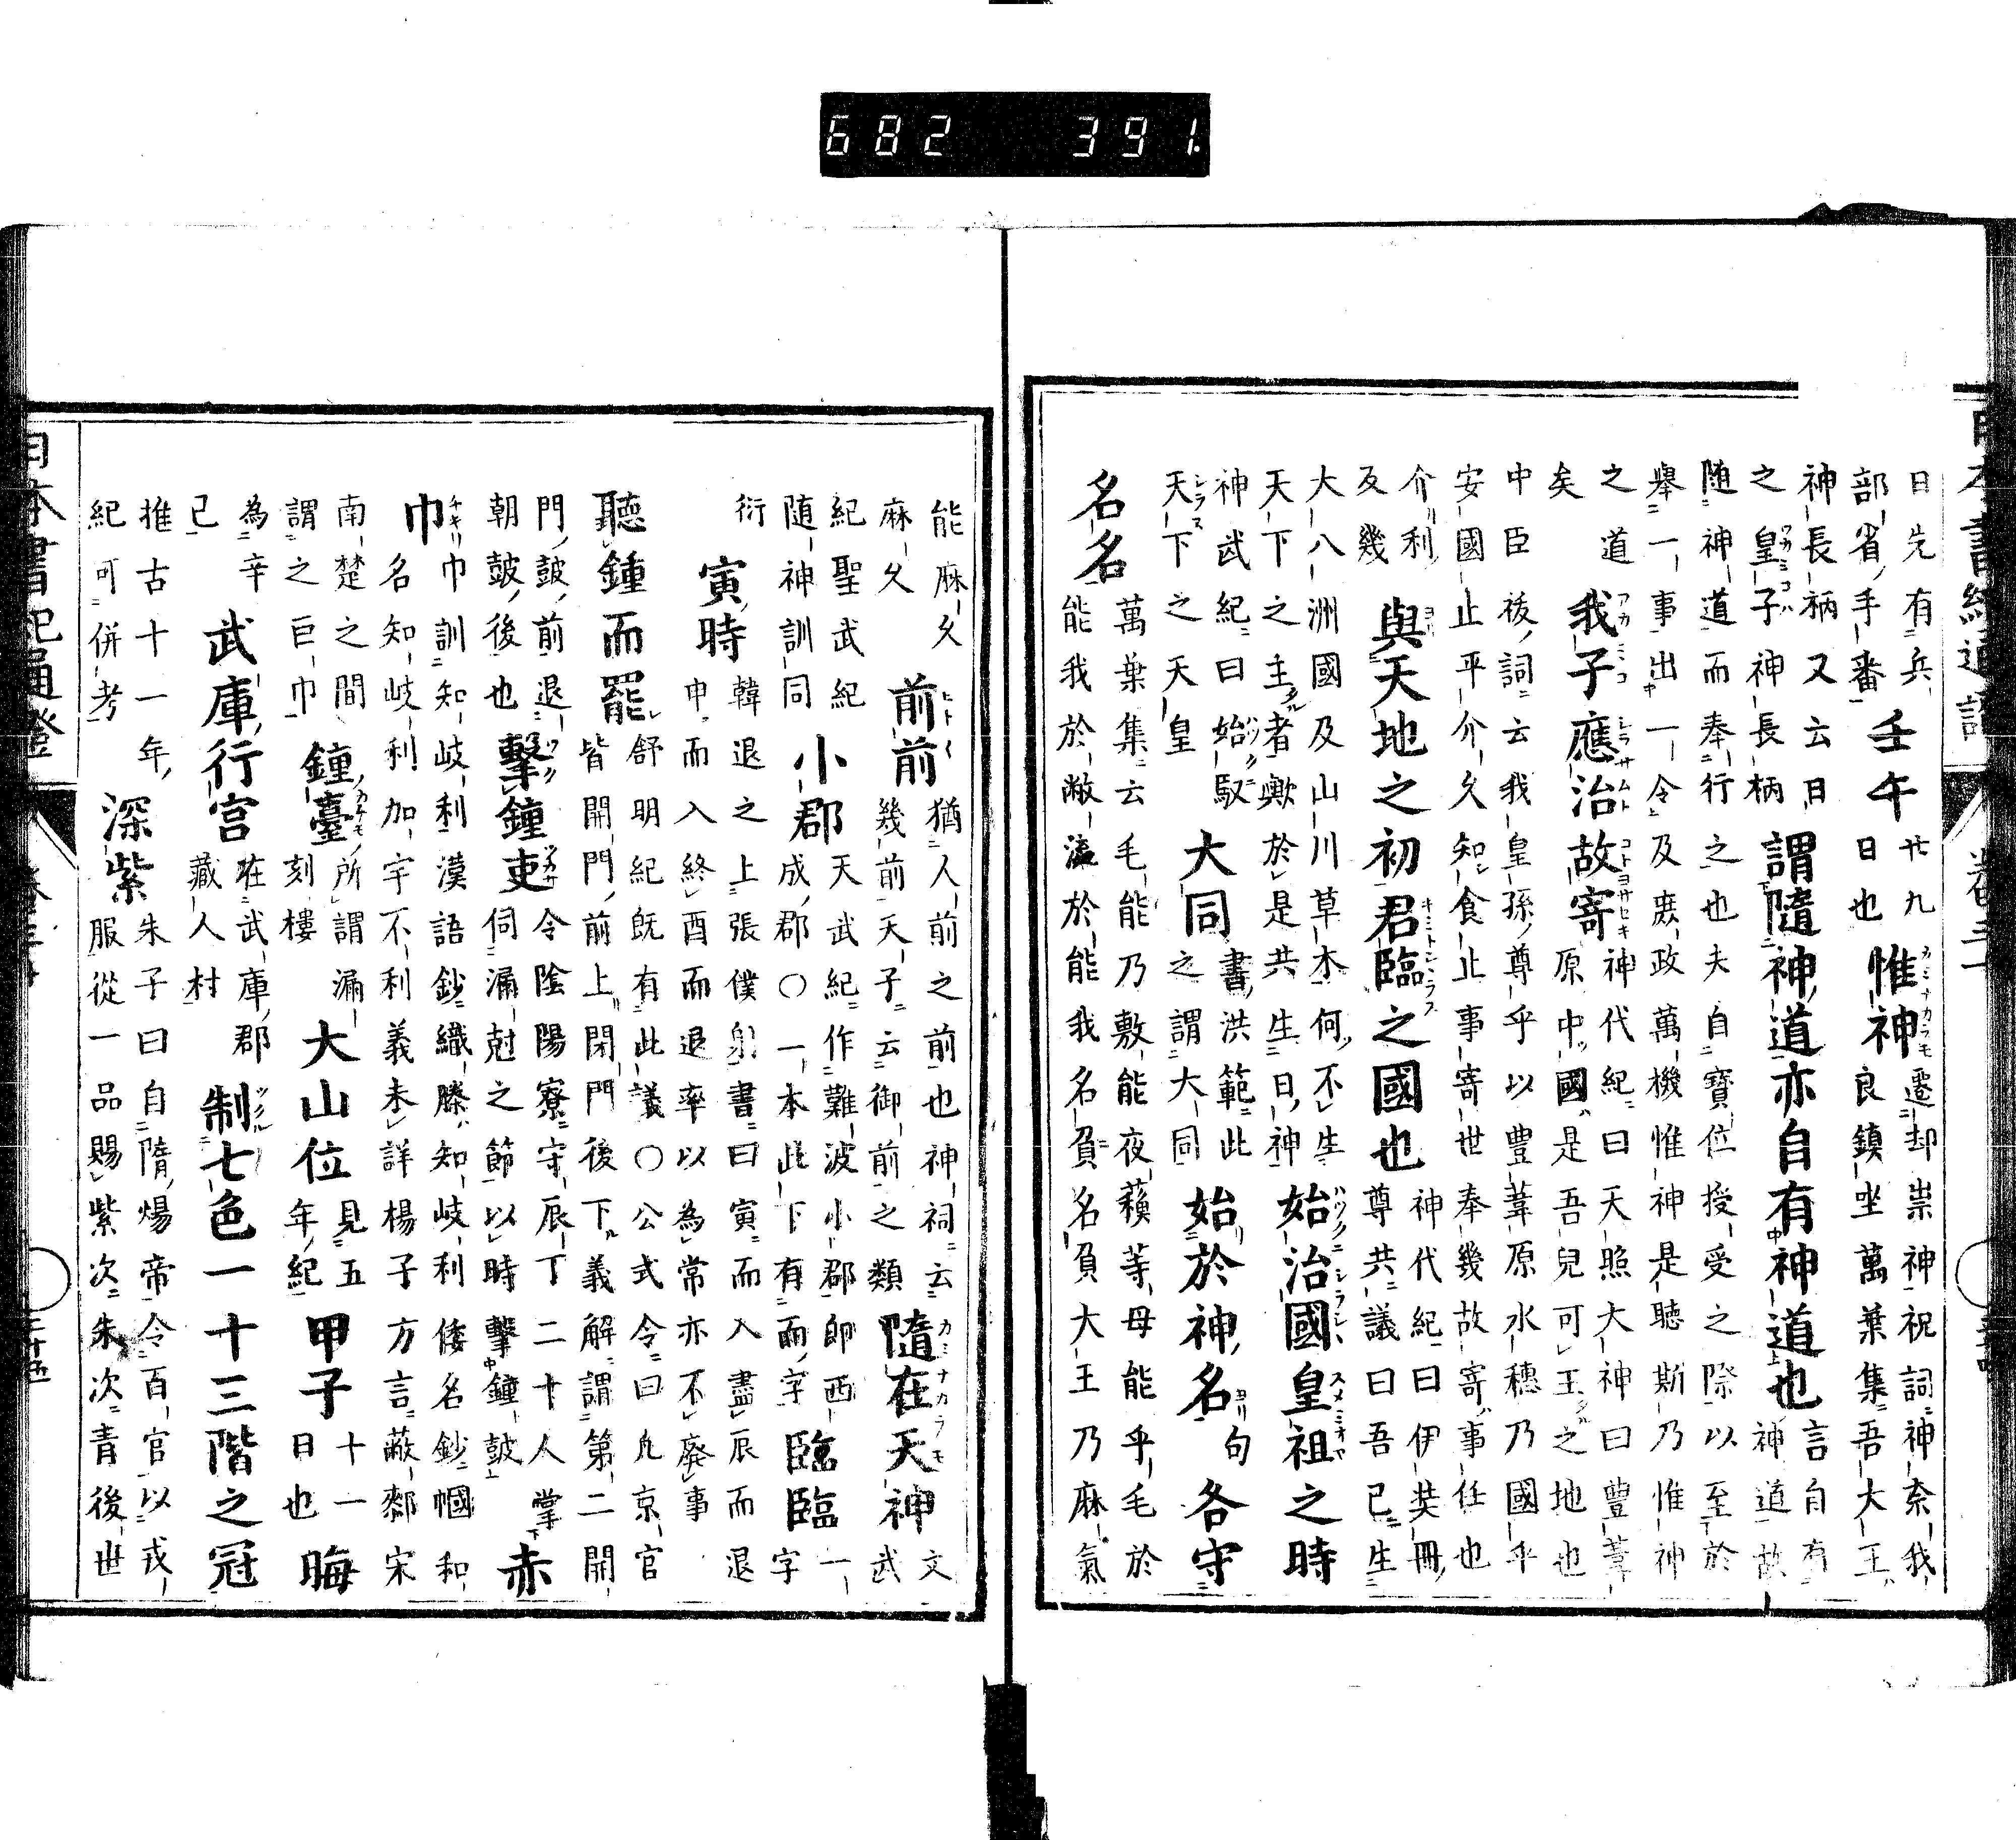 682 391.
日先有兵
部省手番
壬午
廿九
日也
惟神
遷却崇神祝詞神奈我
良鎮坐萬葉集吾大王
神長柄又云日
之皇子神長柄
謂隨神道亦自有神道也
言自有
神道故
随神道而奉行之也夫自寶位授受之際以至於
舉一事出一令及庶政萬機惟神是聽斯乃惟神
之道
矣
我子應治故寄
神代紀曰天照大神曰豐葦
原中國是吾兒可王之地也
中臣後詞云我皇孫尊乎以豊葦原水穗乃國乎
安國止平介久知食止事寄世奉幾故寄事任也
介利
及幾
與天地之初君臨之國也
神代紀曰伊奘冊
尊共議曰吾已生
大八洲國及山川草木何不生
天下之主者歟於是共生日神
始治國皇祖之時
神武紀曰始馭
天下之天皇
大同
書洪範此
之謂大同
始於神名
句
各守
名名
萬葉集云毛能乃敷能夜蘓等母能乎毛於
能我於敝於能我名負名負大王乃麻氣
能麻久
麻久
前前
猶人前之前也神祠云
幾前天子云御前之類
隨在天神
文
武
紀聖武紀
随神訓同
小郡
天武紀作難波小郡即西一
成郡〇一本此下有而字
臨臨
字
衍
寅時
韓退之上張僕射書曰寅而入盡辰而退
申而入終酉而退率以為常亦不廢事
聽鍾而罷
舒明紀既有此議〇公式令曰凡京官
皆開門前上閉門後下義解謂第二開
門皷前退
朝皷後也
擊鍾吏
令陰陽寮守辰丁二十人掌
伺漏尅之節以時擊鐘皷
赤
巾
巾訓知岐利漢語鈔織縢知岐利倭名鈔幗和
名知岐利加宇不利義未詳楊子方言蔽䣛宋
南楚之間
謂之巨巾
鐘臺
所謂漏
刻樓
大山位
見五
年紀
甲子
十一
日也
晦
為辛
已
武庫行宮
在武庫郡
藏人村
制七色一十三階之冠
推古十一年
紀可併考
深紫
朱子曰自隋煬帝令百官以戎
服從一品賜紫次朱次青後世
日本書紀通證